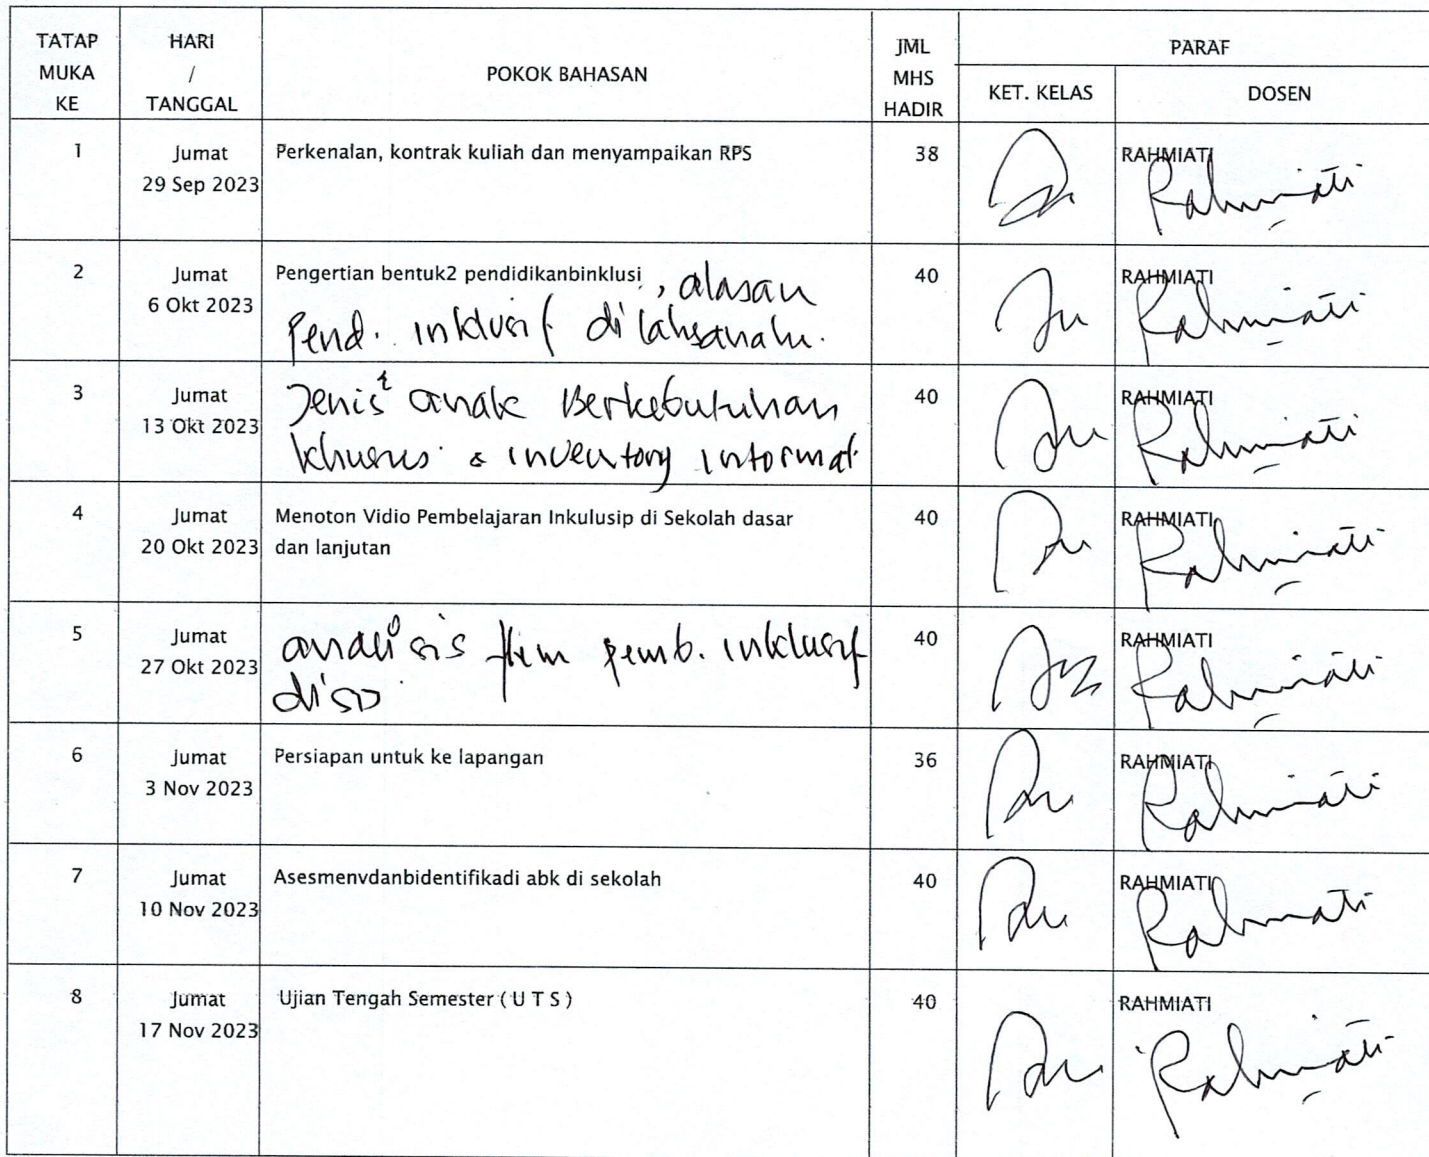 TATAP MUKA KE
HARI / TANGGAL
POKOK BAHASAN
JML MHS HADIR
PARAF
KET. KELAS
DOSEN
1
Jumat
29 Sep 2023
Perkenalan, kontrak kuliah dan menyampaikan RPS
38
RAHMIATI
Rahmiati
2
Jumat
6 Okt 2023
Pengertian bentuk2 pendidikanbinklusi , alasan
Pend. inklusif dilaksanakn.
40
RAHMIATI
Rahmiati
3
Jumat
13 Okt 2023
Jenis² anak Berkebutuhan
khusus & inventory informal
40
RAHMIATI
Rahmiati
4
Jumat
20 Okt 2023
Menoton Vidio Pembelajaran Inkulusip di Sekolah dasar
dan lanjutan
40
RAHMIATI
Rahmiati
5
Jumat
27 Okt 2023
analisis film pemb. inklusif
di SD
40
RAHMIATI
Rahmiati
6
Jumat
3 Nov 2023
Persiapan untuk ke lapangan
36
RAHMIATI
Rahmiati
7
Jumat
10 Nov 2023
Asesmenvdanbidentifikadi abk di sekolah
40
RAHMIATI
Rahmiati
8
Jumat
17 Nov 2023
Ujian Tengah Semester ( U T S )
40
RAHMIATI
Rahmiati